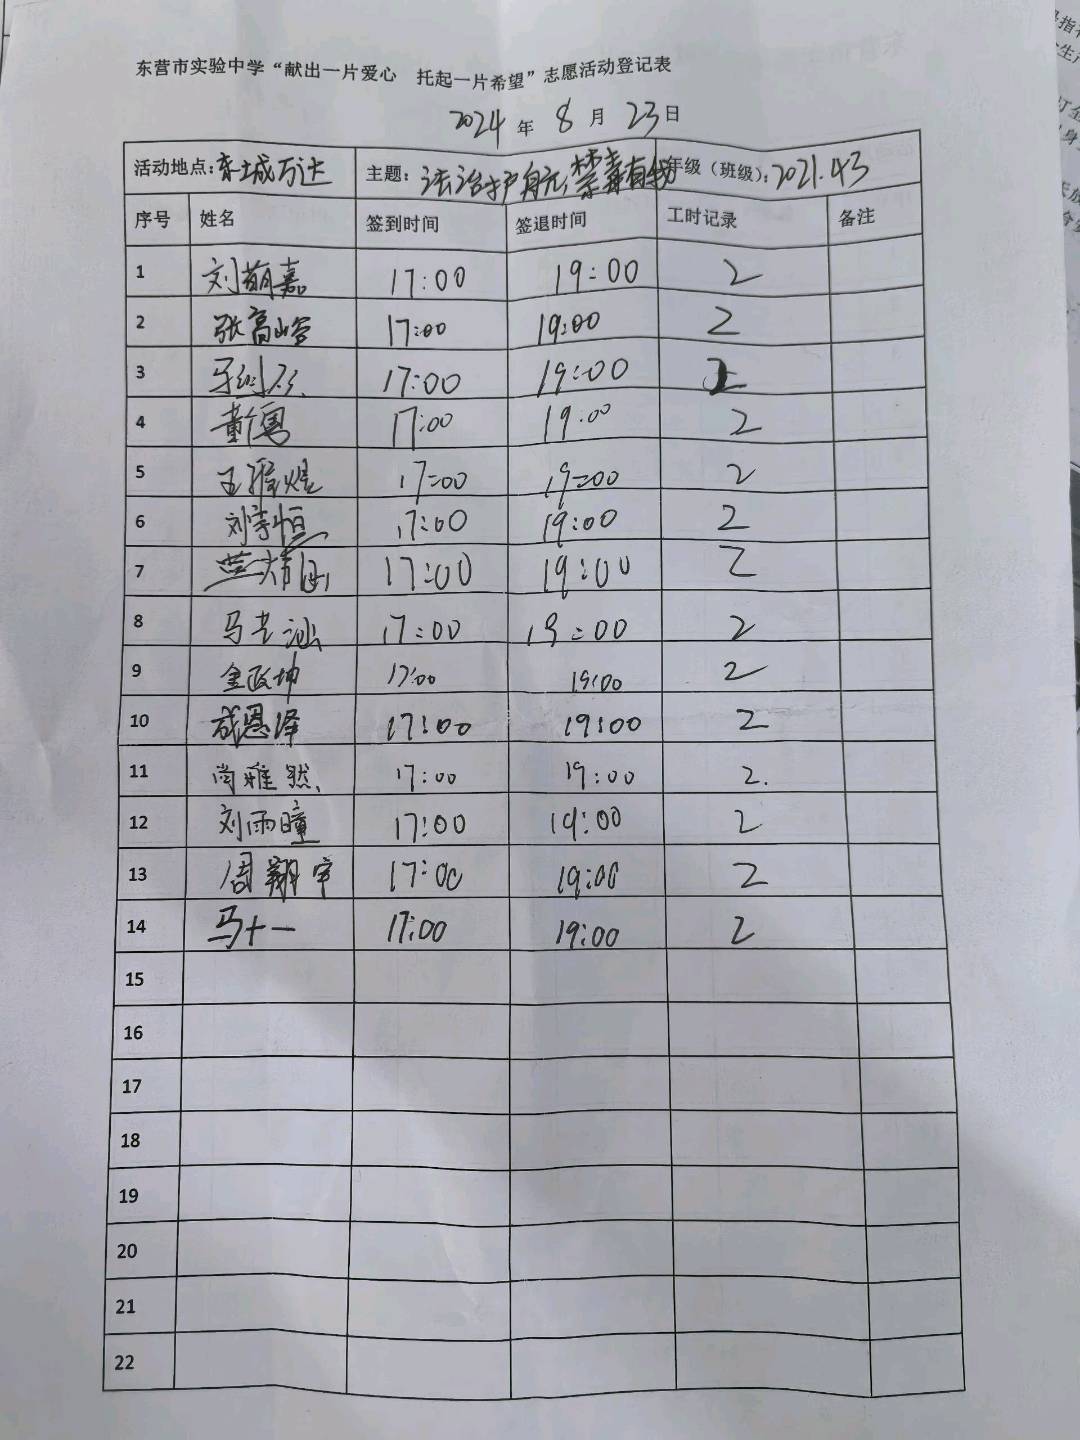 东营市实验中学“献出一片爱心 托起一片希望”志愿活动登记表
2024 年 8 月 23 日
活动地点: 东城万达 主题: 法治护航,禁毒有我 年级（班级）: 2021.43
序号 姓名 签到时间 签退时间 工时记录 备注
1 刘萌嘉 17:00 19:00 2
2 张高峪 17:00 19:00 2
3 17:00 19:00 2
4 董 17:00 19:00 2
5 王 煜 17:00 19:00 2
6 刘宗恒 17:00 19:00 2
7 17:00 19:00 2
8 马艺涵 17:00 19:00 2
9 金政坤 17:00 19:00 2
10 成恩泽 17:00 19:00 2
11 尚雅然 17:00 19:00 2.
12 刘雨曈 17:00 19:00 2
13 周翔宇 17:00 19:00 2
14 马十一 17:00 19:00 2
15
16
17
18
19
20
21
22